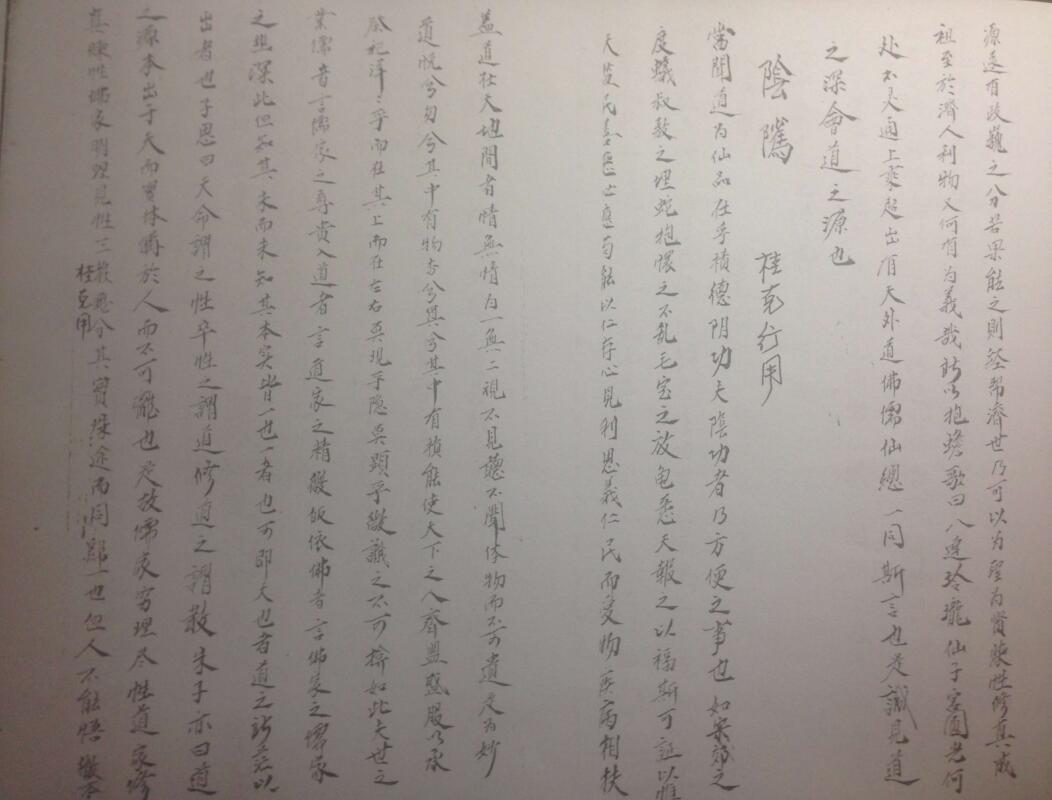 源遠有政巍之分若果能之則經邦濟世乃可以为聖为賢煉性修真成
祖至於濟人利物又何有为義哉所以抱蟾歌曰八達玲瓏仙子容圓光何
处不灵通上乘超出眉天外道佛儒仙總一同斯言也是識見道
之深會道之源也
陰騭 桂克行用
當聞道为仙品在乎積德阴功夫陰功者乃方便之事也如宋郊之
度蟻叔敖之埋蛇抱懷之不乱毛宝之放龟悉天報之以福斯可証以惟
天 民 應 苟能以仁存心見利思義仁民而愛物疾病相扶
盖道在天地間者情無情为一無二視不見聽不聞体物而不可遺是为妙
道恍兮匆兮其中有物杳兮冥兮其中有積能使天下之人齊盟盛服以承
祭祀洋々乎而在其上而在左右莫現乎隐莫顯乎微議之不可擒如此夫世之
業儒者言儒家之尊貴入道者言道家之精微皈依佛者言佛家之
之幽深此但知其末而未知其本实皆一也一者也可即天也者道之所
出者也子思曰天命謂之性卒性之謂道修道之謂教朱子亦曰道
之源本出于天而實体備於人而不可離也是故儒家穷理尽性道家修
真煉性佛家明理見性三教虽分其實殊途而同歸一也但人不能悟徹本
桂克用